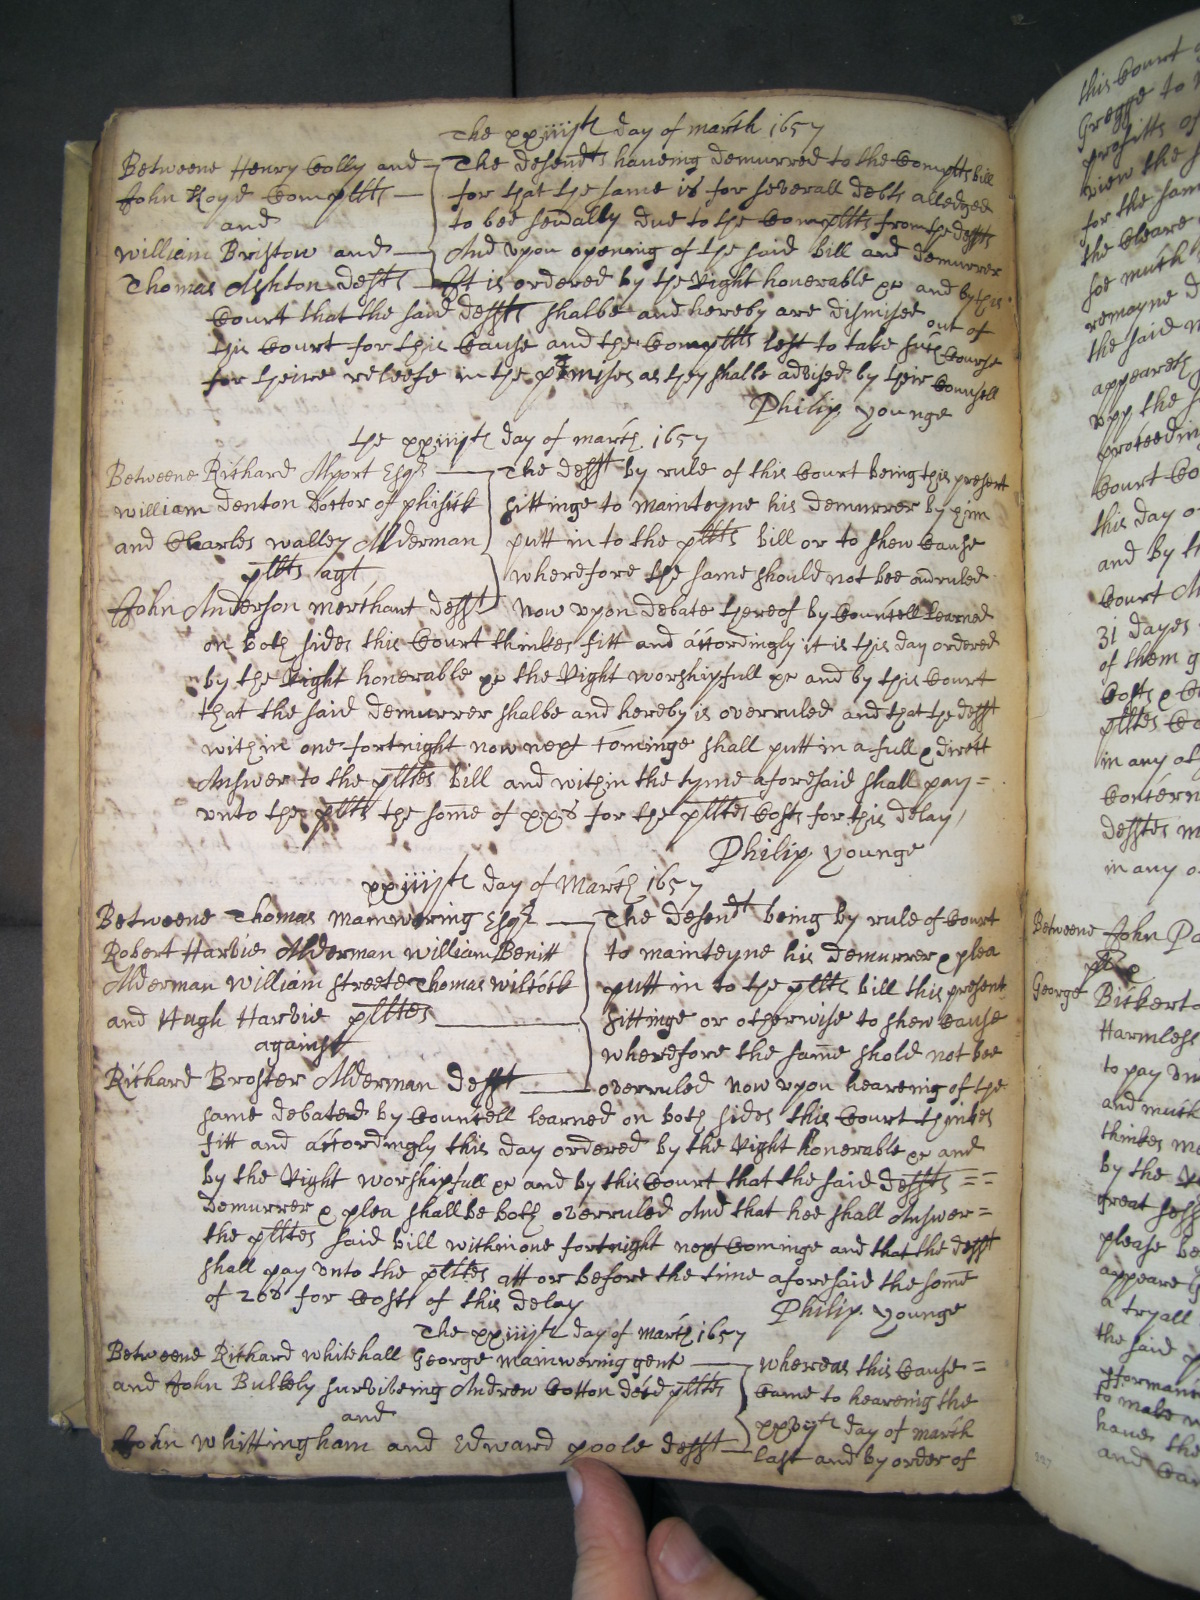 The xxiiijth day of march 1657
Betweene Henry Colly and
John Royd Complts
and
William Bristow and
Thomas Ashton Defts
The Defendts haveing demurred to the Complts bill
for that the same is for severall debts alledged
to bee sevrally due to the Complts from the Defts
And vpon opening of the said bill and demurrer
It is ordered by the Right honerable &c and by this
Court that the said Defts shalbe and hereby are dismised out of
this Court for this Cause and the Complts left to take such Course
for theire releefe in the prmises as they shalbe advised by their Counsell
Philip Younge
the xxiiijth day of march 1657
Betweene Richard Alport Esqr
William Denton Doctor of phisick
and Charles Walley Alderman
pllts agt
John Anderson merchant Deft
The Deft by rule of this Court being this present
sittinge to mainteyne his demurrer by him
putt in to the pllts bill or to shew Cause
wherefore the same should not bee overruled
Now vpon debate thereof by Councell Learned
on both sides this Court thinkes fitt and accordingly it is this day ordered
by the Right honerable &c the Right worshipfull &c and by this Court
that the said demurrer shalbe and hereby is overruled and that the Deft
within one fortnight now next cominge shall putt in a full & direct
Answer to the plltes bill and within the tyme aforesaid shall pay =
vnto the pllts the some of xxs for the plltes Costs for this delay
Philip Younge
xxiiijth day of March 1657
Betweene Thomas Mainwering Esqr
Robert Harvie Alderman William Benitt
Alderman William Streete Thomas Wilcock
and Hugh Harvie plltes
against
Richard Broster Alderman Deft
The Defendt being by rule of Court
to mainteyne his demurrer & plea
putt in to the pllts bill this present
sittinge or otherwise to shew Cause
wherefore the same shold not bee
overruled Now vpon heareing of the
same debated by Councell learned on both sides this Court thinkes
fitt and accordingly this day ordered by the Right honerable &c and
by the Right worshipfull &c and by this Court that the said Defts = =
Demurrer & plea shall be both overruled And that hee shall Answer =
the plltes said bill within one fortnight next Cominge and that the Deft
shall pay vnto the plltes att or before the time aforesaid the some
of 20s for Costs of this delay
Philip Younge
The xxiiijth day of march 1657
Betweene Richard Whitehall George Mainwering gent
and John Bulkely surviveing Andrew Cotton decd pllts
and
John Whittingham and Edward Poole Defts
Whereas this Cause =
Came to heareing the
day of march
last and by order of
this Court
Gregge to
profitts of
view the
for the sam
the Cleare
soe much
remayne
the said
appeareth
vpp the
proceedin
Court Co
this day o
and by t
Court
31 dayes
of them
Costs & C
plltes Co
in any
Concern
Deftes
in any
Betweene John Pa
George Bickerto
Harmless
to pay vn
and much
thinkes
by the
great sess
please be
appeare
a tryall
the said
to make
have the
and